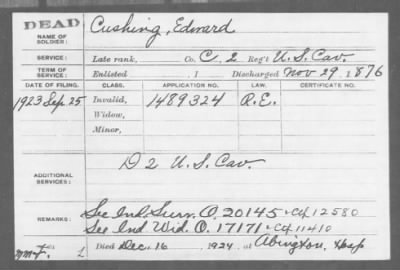 DEAD
Cushing, Edward
NAME OF SOLDIER:
SERVICE: Late rank, Co. C, 2 Reg't U.S. Cav.
TERM OF SERVICE: Enlisted , 1 Discharged Nov 29, 1876
DATE OF FILING. CLASS. APPLICATION NO. LAW. CERTIFICATE NO.
1923 Sep. 25 Invalid, 1489324 R.E.
Widow,
Minor,
D 2 U.S. Cav.
ADDITIONAL SERVICES:
REMARKS: See Ind. Surv. O. 20145 + Ctf 12580
See Ind Wid. O. 17171 + Ctf 11410
Died Dec. 16, 1924, at Abington,